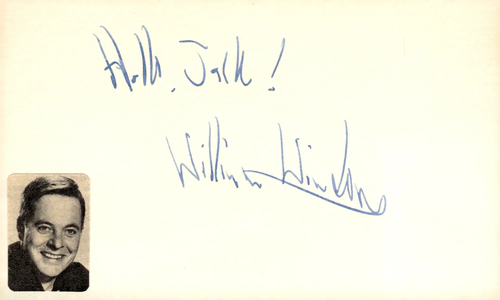 Hello, Jack!
William Windom